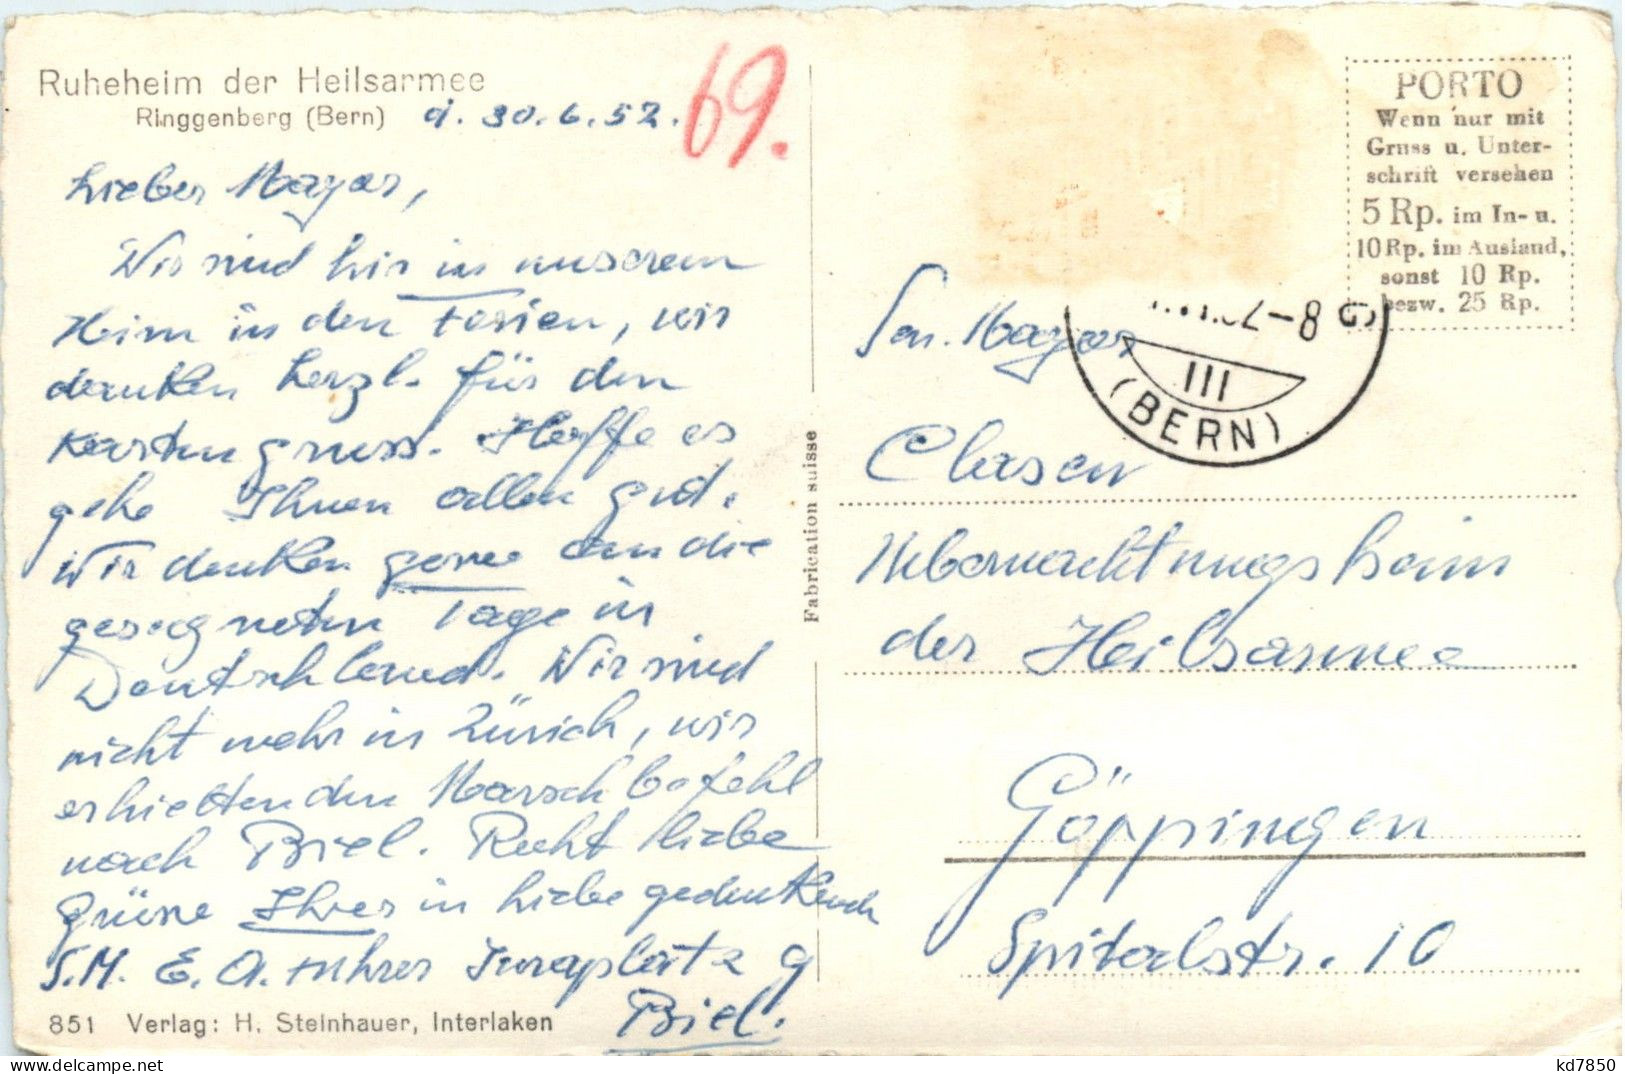 Ruheheim der Heilsarmee
Ringgenberg (Bern) d. 30.6.52.
69.
Lieber Mayor,
Wir sind hir in unserem
Heim in den Ferien, wir
danken herzl. für den
Kartengruss. Hoffe es
gehe Ihnen allen gut.
Wir denken gerne an die
gesegneten Tage in
Deutschland. Wir sind
nicht mehr in Zürich, wir
erhielten den Marschbefehl
nach Biel. Recht liebe
Grüsse Ihrer in Liebe gedenkend
S.M. E. A. Juraplatz 9
Biel.
851 Verlag: H. Steinhauer, Interlaken
Fabrication suisse
PORTO
Wenn nur mit
Gruss u. Unter-
schrift versehen
5 Rp. im In- u.
10 Rp. im Ausland,
sonst 10 Rp.
bezw. 25 Rp.
52-8
III
(BERN)
Sen. Mayor
Clasen
Uebernachtungsheim
der Heilsarmee
Göppingen
Spitalstr. 10
delcampe.net
kd7850